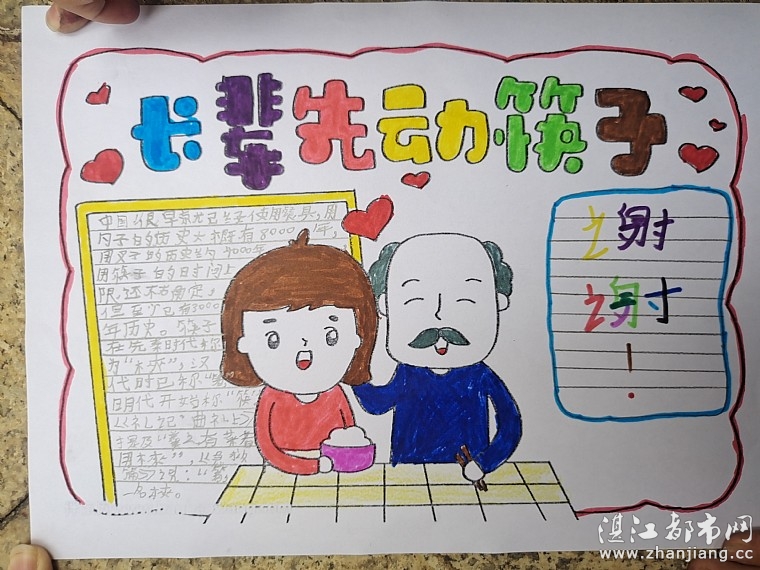 长辈先动筷子
中国很早就已经使用餐具,用
勺子的历史大概有8000年,
用叉子的历史约4000年
用筷子的时间上
限还不确定,
但至少已有3000
年历史。筷子
在先秦时代称
为“梜”,汉
代时已称“箸
明代开始称“筷
《礼记·曲礼上》
提及“羹之有菜者
用梜”,
谢
谢
!
湛江都市网
www.zhanjiang.cc